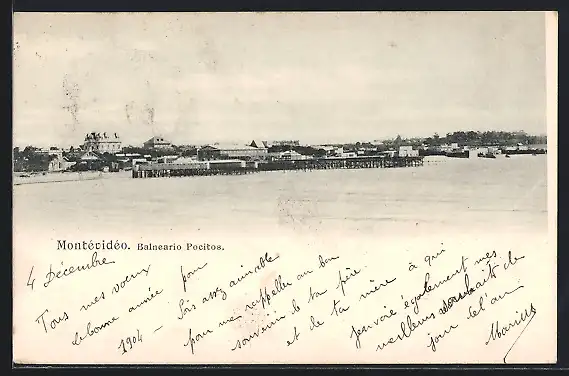 Montévidéo. Balneario Pocitos.
4 Décembre
Tous mes voeux pour
de bonne année
1904 –
Sois assez aimable
pour me rappeller au bon
souvenir de ta père
et de ta mère à qui
j'envoie également mes
meilleurs souhaits de
jour de l'an
Marius